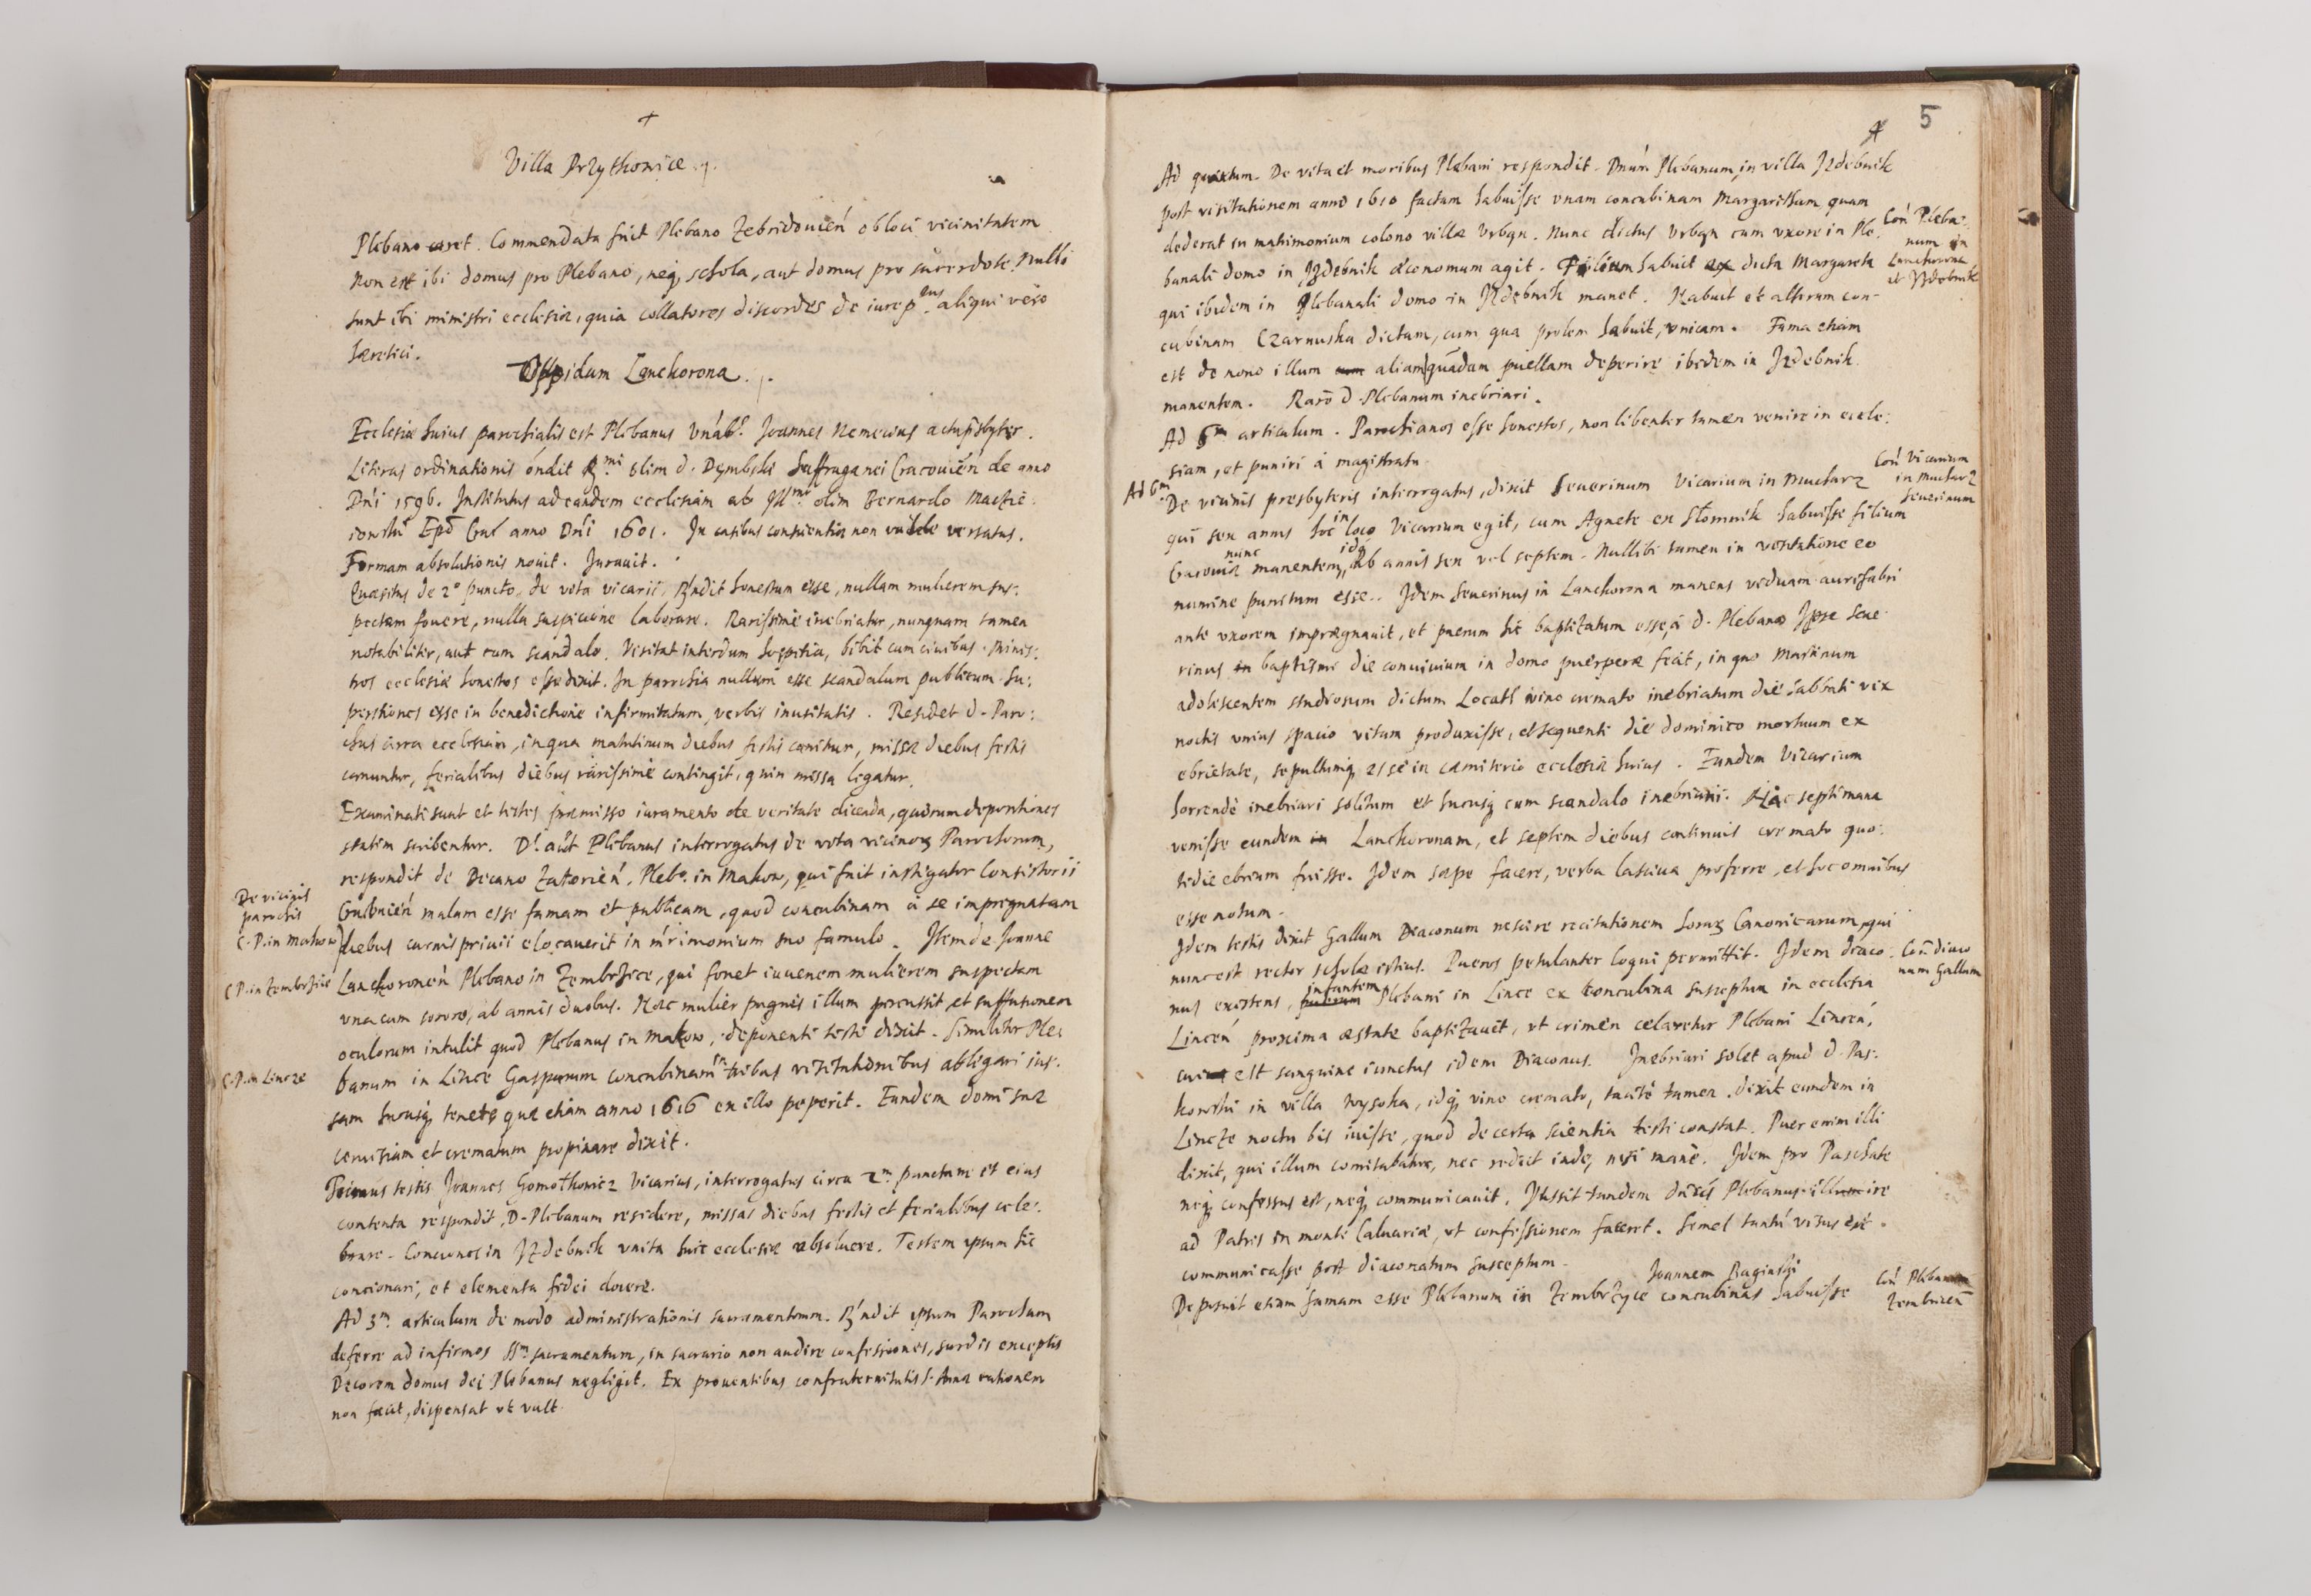 Villa Przythonice.
Plebano caret. Commendata fuit Plebano Zebridouicen̄ ob loci vicinitatem
Non est ibi domus pro Plebano, neq; schola, aut domus pro sacerdote. Nulli
sunt ibi ministri ecclesiæ, quia collatores discordes de iure p.tus aliqui vero
hæretici.
Oppidum Lanckorona.
Ecclesiæ huius parochialis est Plebanus Vnābl. Joannes Nemecius actu p̄sbyter.
Literas ordinationis on̄dit R.mi olim d. Dymbski Suffraganei Cracouień de anno
Dn̄i 1596. Institutus ad eandem ecclesiam ab Ill.mo olim Bernardo Maczie:
iowski Ep̄o Crac̄ anno Dn̄i 1601. In casibus conscientiæ non valde versatus.
Formam absolutionis nouit. Jurauit.
Quæsitus de 2º puncto, de vita vicarii, Rn̄dit honestum esse, nullam mulierem sus:
pectam fouere, nulla suspicione laborare. Rarissimè inebriatur, nunquam tamen
notabiliter, aut cum scandalo. Visitat interdum hospitia, bibit cum ciuibus. Minis:
tros ecclesiæ honestos esse dixit. In parochia nullum esse scandalum publicum. Su:
perstitiones esse in benedictione infirmitatum, verbis inusitatis. Residet d. Paro:
chus circa ecclesiam, in qua matutinum diebus festis canitur, missæ diebus festis
canuntur, ferialibus diebus rarissimè contingit, quin missa legatur.
Examinati sunt et testes præmisso iuramento de veritate dicenda, quorum depositiones
statim scribentur. D. aut̄ Plebanus interrogatus de vita vicinorz Parochorum,
De vicinis
parochis
respondit de Decano Zatorień. Pleb.º in Makow, qui fuit instigator Consistorii
Cracouień malam esse famam et publicam, quod concubinam à se impregnatam
C. P. in Makow
diebus carnispriuii elocauerit in mr̄imonium suo famulo. Item de Joanne
C P. in Zembrzice
Lanckoronen̄ Plebano in Zembrzice, qui fouet iuuenem mulierem suspectam
vna cum sorore, ab annis duobus. Hæc mulier pugnis illum percussit et suffusionem
oculorum intulit quod Plebanus in Makow, deponenti testi dixit. Similiter Ple:
C. P. in Lincze
banum in Lincze Gasparum concubinam in tribus visitationibus ablegari ius:
sam hucusq; tenere quæ etiam anno 1616 ex illo peperit. Eundem domi suæ
ceruisiam et crematum propinare dixit.
Primus testis Joannes Gomothowicz Vicarius, interrogatus circa 2.m punctum et eius
contenta respondit, D. Plebanum residere, missas diebus festis et ferialibus cele:
brare. Conciones in Izdebnik vnita huic ecclesiæ absoluere. Testem ipsum hic
concionari, et elementa fidei docere.
Ad 3.m articulum de modo administrationis sacramentorum. Rn̄dit ipsum Parochum
deferre ad infirmos SS.m sacramentum, in sacrario non audire confessiones, surdis exceptis
Decorem domus dei Plebanus negligit. Ex prouentibus confraternitatis S. Annæ rationem
non facit, dispensat vt vult.
5
Ad quartum. De vita et moribus Plebani respondit. Dnūm Plebanum in villa Izdebnik
post visitationem anno 1610 factam habuisse vnam concubinam Margaretham quam
dederat in matrimonium colono villæ Vrban. Nunc dictus Vrban cum vxore in Ple:
Con̄ Pleba:
num in
Lanckorona
et Izdebnik
banali domo in Izdebnik œconomum agit. Filium habuit ex dicta Margareta
qui ibidem in Plebanali domo in Izdebnik manet. Habuit et alteram con:
cubinam Czarnuska dictam, cum qua prolem habuit, vnicam. Fama etiam
est de nouo illum aliam quādam puellam deperire ibidem in Izdebnik
manentem. Raro d. Plebanum inebriari.
Ad 5.m articulum. Parochianos esse honestos, non libenter tamen venire in eccle:
siam, et puniri à magistratu.
Ad 6.m
De vicinis presbyteris interrogatus, dixit Seuerinum Vicarium in Mucharz
Con̄ Vicarium
in Mucharz
Seuerinum
qui sex annis hoc in loco Vicarium egit, cum Agnete ex Stomnik habuisse filium
Cracouiæ nunc manentem, idq; ab annis sex vel septem. Nullibi tamen in visitatione eo
nomine punitum esse. Idem Seuerinus in Lanckorona manens viduam aurifabri
ante vxorem imprægnauit, et puerum hic baptizatum esse, à d. Plebano Ipse Seue:
rinus in baptismi die conuiuium in domo puerperæ fecit, in quo Martinum
adolescentem studiosum dictum Locatl vino cremato inebriatum die sabbati vix
noctis vnius spacio vitam produxisse, et sequenti die dominico mortuum ex
ebrietate, sepultumq; esse in cæmiterio ecclesiæ huius. Eundem Vicarium
horrendè inebriari solitum et hucusq; cum scandalo inebriari. Hac septimana
venisse eundem Lanckoronam, et septem diebus continuis cremato quo:
tidie ebrium fuisse. Idem sæpe facere, verba lasciua proferre, et hoc omnibus
esse notum.
Idem testis dixit Gallum Diaconum nescire recitationem horarz Canonicarum, qui
nunc est rector scholæ istius. Pueros petulanter loqui permittit. Idem diaco:
Con̄ diaco
num Gallum
nus existens, infantem Plebani in Lincze ex concubina susceptum in ecclesia
Lincen̄ proxima æstate baptizauit, vt crimen celaretur Plebani Lincen̄,
cui est sanguine iunctus idem Diaconus. Inebriari solet apud d. Pas:
kowski in villa Wysoka, idq; vino cremato, tacitè tamen. Dixit eundem in
Lincze noctu bis iuisse, quod de certa scientia testi constat. Puer enim illi
dixit, qui illum comitabatur, nec rediit inde, nisi manè. Idem pro Paschate
neq; confessus est, neq; communicauit. Iussit tandem dictus Plebanus illum ire
ad Patres in monte Caluariæ, vt confessionem faceret. Semel tantu̅ visus est
communicasse post diaconatum susceptum.
Deposuit etiam famam esse Plebanum in Zembrzyce Joannem Raginski concubinas habuisse
Con̄ Plebanum
Zembricen̄